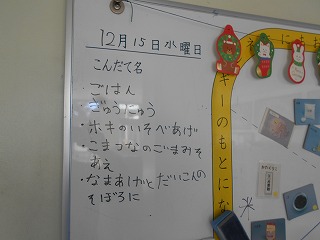 12月15日水曜日
こんだて名
・ごはん
・ぎゅうにゅう
・ホキのいそべあげ
・こまつなのごまみそ
あえ
・なまあげとだいこんの
そぼろに
キーのもとにな
米